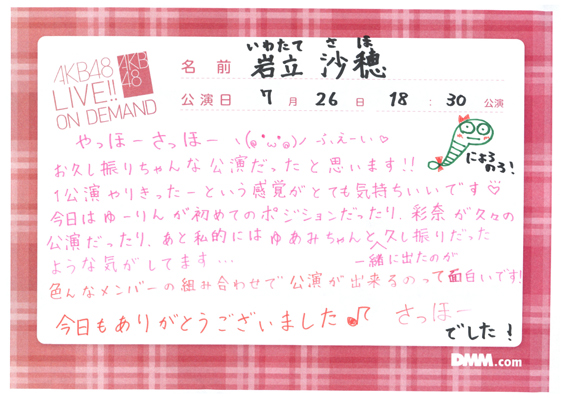 AKB48
LIVE!!
ON DEMAND
AKB
48
いわたて さほ
名前 岩立 沙穂
公演日 7月26日 18:30 公演
やっほーさっほーヽ(๏'ω'๏)ノ ふぇーい♡
お久し振りちゃんな公演だったと思います!!
1公演やりきったーという感覚がとても気持ちいいです♡
今日はゆーりんが初めてのポジションだったり、彩奈が久々の
公演だったり、あと私的にはゆあみちゃんと久し振りだった
一緒に出たのが
ような気がしてます…
色んなメンバーの組み合わせで公演が出来るのって面白いです!
今日もありがとうございました♪ さっほー
でした!
にょろ
のろ!
DMM.com